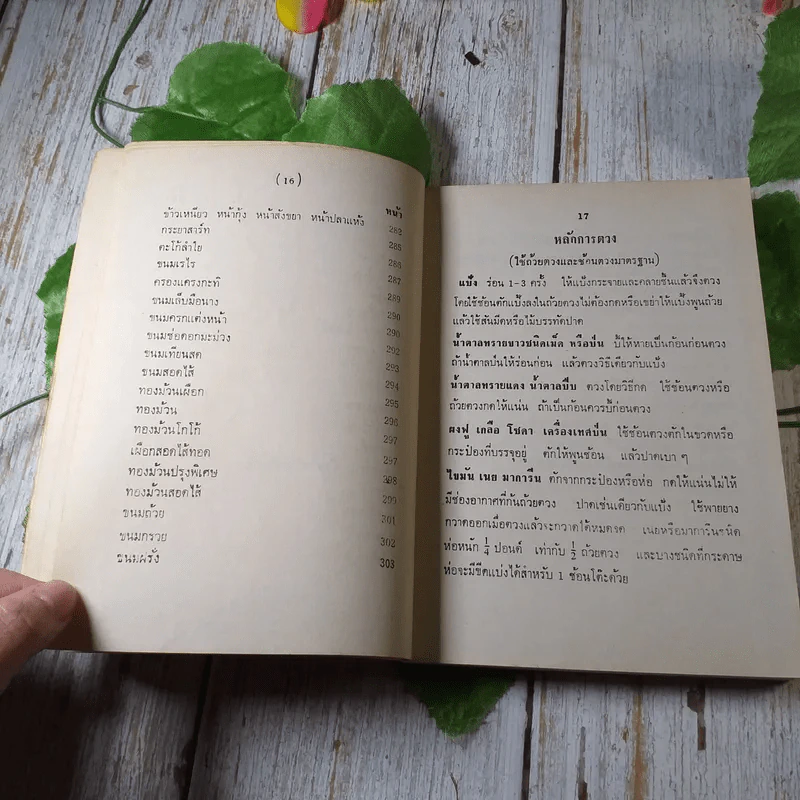 (16)
หน้า
ข้าวเหนียว หน้ากุ้ง หน้าสังขยา หน้าปลาแห้ง 282
กระยาสาร์ท 285
ตะโก้ลำใย 286
ขนมเรไร 287
ครองแครงกะทิ 289
ขนมเล็บมือนาง 290
ขนมครกแต่งหน้า 290
ขนมช่อดอกมะม่วง 292
ขนมเทียนสด 293
ขนมสอดไส้ 294
ทองม้วนเผือก 295
ทองม้วน 296
ทองม้วนโกโก้ 297
เผือกสอดไส้ทอด 297
ทองม้วนปรุงพิเศษ 298
ทองม้วนสอดไส้ 299
ขนมถ้วย 301
ขนมกรวย 302
ขนมฝรั่ง 303
17
หลักการตวง
(ใช้ถ้วยตวงและช้อนตวงมาตรฐาน)
แป้ง ร่อน 1-3 ครั้ง ให้แป้งกระจายและคลายชื้นแล้วจึงตวง
โดยใช้ช้อนตักแป้งลงในถ้วยตวงไม่ต้องกดหรือเขย่าให้แป้งพูนถ้วย
แล้วใช้สันมีดหรือไม้บรรทัดปาด
น้ำตาลทรายขาวชนิดเม็ด หรือป่น บี้ให้หายเป็นก้อนก่อนตวง
ถ้าน้ำตาลป่นให้ร่อนก่อน แล้วตวงวิธีเดียวกับแป้ง
น้ำตาลทรายแดง น้ำตาลปี๊บ ตวงโดยวิธีกด ใช้ช้อนตวงหรือ
ถ้วยตวงกดให้แน่น ถ้าเป็นก้อนควรบี้ก่อนตวง
ผงฟู เกลือ โซดา เครื่องเทศป่น ใช้ช้อนตวงตักในขวดหรือ
กระป๋องที่บรรจุอยู่ ตักให้พูนช้อน แล้วปาดเบา ๆ
ไขมัน เนย มาการีน ตักจากกระป๋องหรือห่อ กดให้แน่นไม่ให้
มีช่องอากาศที่ก้นถ้วยตวง ปาดเช่นเดียวกับแป้ง ใช้พายยาง
กวาดออกเมื่อตวงแล้วจะกวาดได้หมดจด เนยหรือมาการีนชนิด
ห่อหนัก ¼ ปอนด์ เท่ากับ ½ ถ้วยตวง และบางชนิดที่กระดาษ
ห่อจะมีขีดแบ่งได้สำหรับ 1 ช้อนโต๊ะด้วย